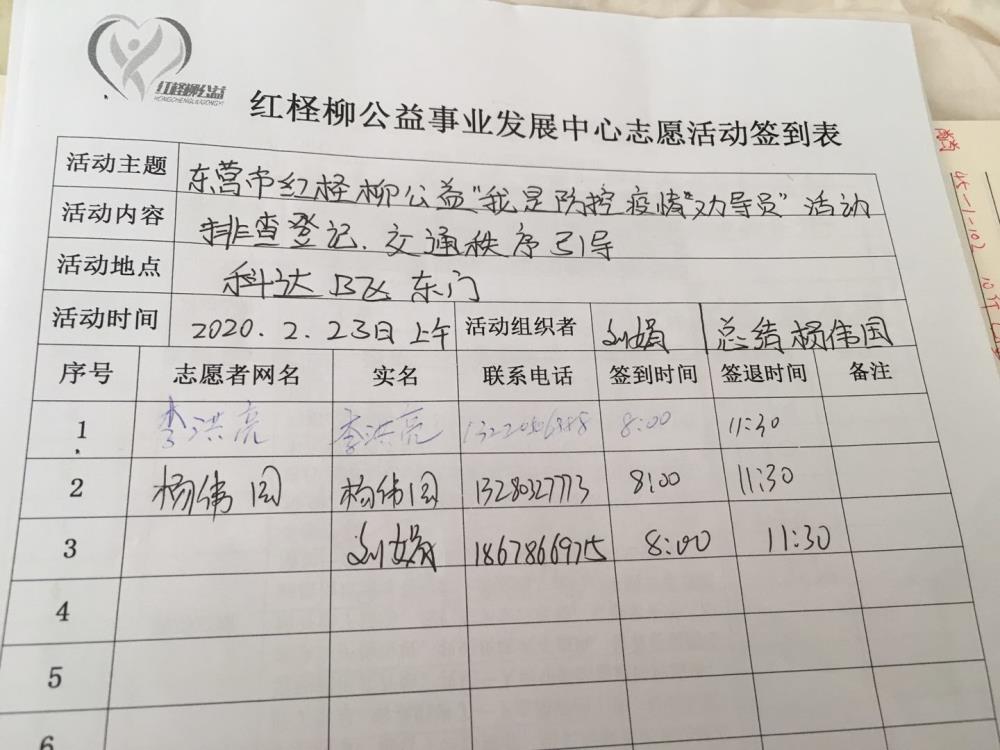 红柽柳公益
HONGCHENGLIUGONGYI
红柽柳公益事业发展中心志愿活动签到表
活动主题 东营市红柽柳公益"我是防控疫情劝导员"活动
活动内容 排查登记、交通秩序引导
活动地点 科达 东门
活动时间 2020.2.23日上午 活动组织者 刘娟 总结 杨伟国
序号 志愿者网名 实名 联系电话 签到时间 签退时间 备注
1 李洪亮 李洪亮 8:00 11:30
2 杨伟国 杨伟国 13280327773 8:00 11:30
3 刘娟 18678669715 8:00 11:30
4
5
6
45-1-102